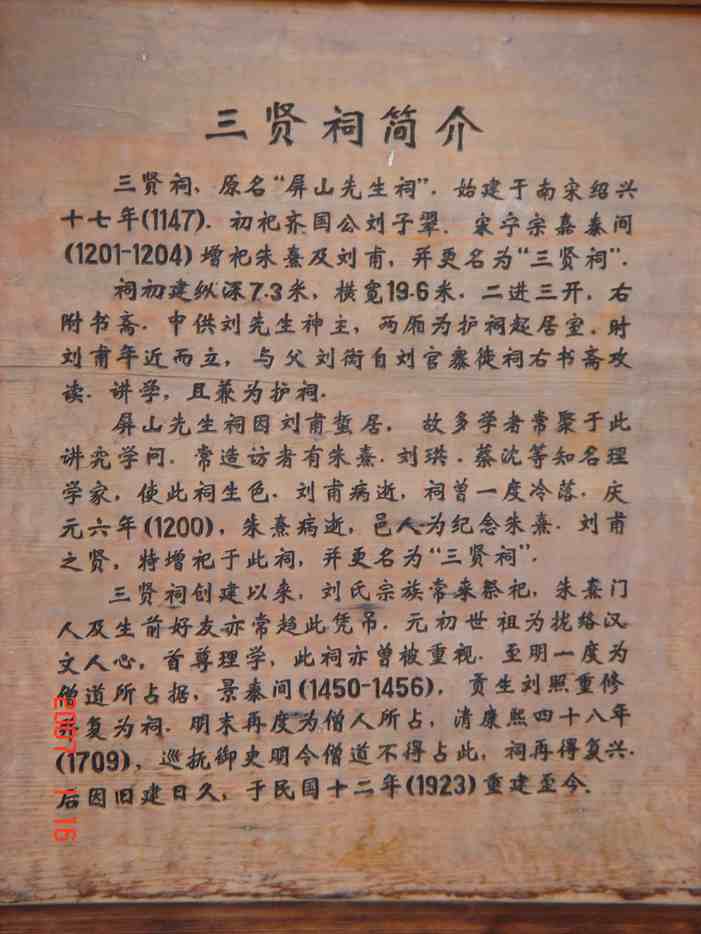 三贤祠简介
三贤祠，原名“屏山先生祠”．始建于南宋绍兴
十七年(1147)．初祀齐国公刘子翚．宋宁宗嘉泰间
(1201-1204)增祀朱熹及刘甫，并更名为“三贤祠”．
祠初建纵深7.3米，横宽19.6米．二进三开，右
附书斋．中供刘先生神主，两厢为护祠起居室．时
刘甫年近而立，与父刘衡自刘官寨徙祠右书斋攻
读．讲学，且兼为护祠．
屏山先生祠因刘甫蜇居，故多学者常聚于此
讲究学问．常造访者有朱熹．刘珙．蔡沈等知名理
学家，使此祠生色．刘甫病逝，祠曾一度冷落．庆
元六年(1200)，朱熹病逝，邑人为纪念朱熹．刘甫
之贤，特增祀于此祠，并更名为“三贤祠”．
三贤祠创建以来，刘氏宗族常来祭祀，朱熹门
人及生前好友亦常趋此凭吊．元初世祖为拢络汉
文人心，首尊理学，此祠亦曾被重视．至明一度为
僧道所占据，景泰间(1450-1456)，贡生刘照重修
并复为祠．明末再度为僧人所占，清康熙四十八年
(1709)，巡抚御史明令僧道不得占此，祠再得复兴．
后因旧建日久，于民国十二年(1923)重建至今．